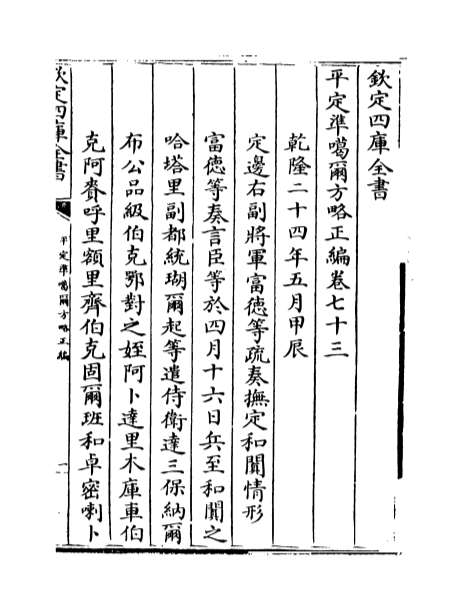 欽定四庫全書
平定準噶爾方略正編卷七十三
乾隆二十四年五月甲辰
定邊右副將軍富德等疏奏撫定和闐情形
富德等奏言臣等於四月十六日兵至和闐之
哈塔里副都統瑚爾起等遣侍衛達三保納爾
布公品級伯克鄂對之姪阿卜達里木庫車伯
克阿賚呼里額里齊伯克固爾班和卓密喇卜
欽定四庫全書
平定準噶爾方略正編
一